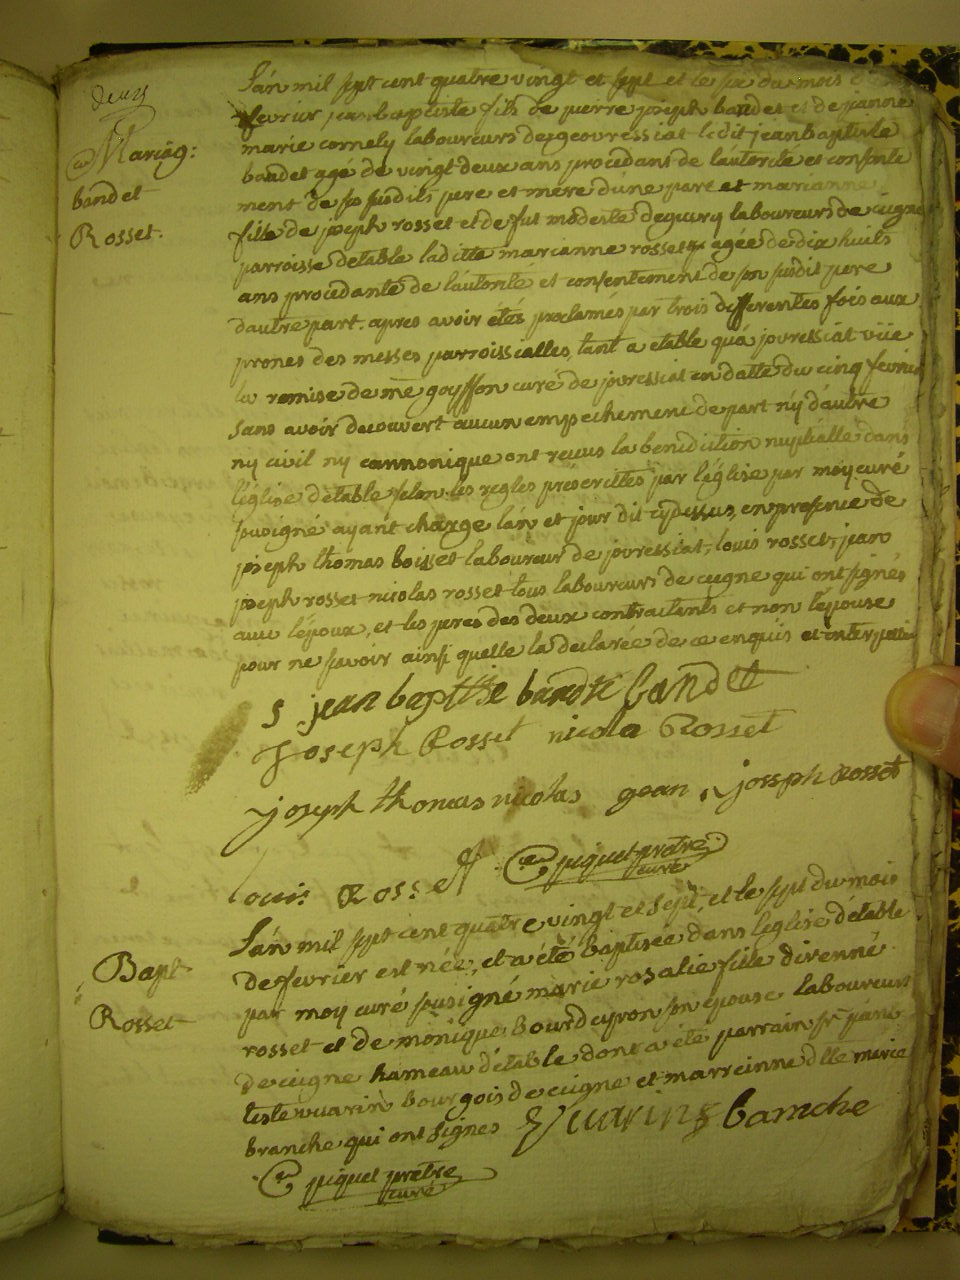 deux
Mariag:
bandet
Rosset.
L'an mil sept cent quatre vingt et sept et le six du mois de
fevrier jean baptiste fils de pierre joseph bandet et de jeanne
marie cornely laboureurs de geovressiat ledit jean baptiste
bandet agé de vingt deux ans procedans de l'autorité et consente
ment de ses susdits pere et mere d'une part et marianne
fille de joseph rosset et de fut modeste laboureurs de ceigne
parroisse detable laditte marianne rosset agée de dix huits
ans procedante de l'autorité et consentement de son susdit pere
dautre part. apres avoir étés proclamés par trois differentes fois aux
prones des messes parroissialles, tant a etable qu'a jovressiat vüe
la remise de me goyffon curé de jovressiat en datte du cinq fevrier
sans avoir decouvert aucun empechement de part n'y d'autre
ny civil ny cannonique ont recus la benidiction nuptialle dans
l'église d'etable selon les regles préscrittes par l'église par moy curé
sousigné ayant charge l'an et jour dit cy dessus, en presence de
joseph thomas boisset laboureur de jovressiat, louis rosset, jean
joseph rosset nicolas rosset tous laboureurs de ceigne qui ont signés
avec l'époux, et les peres des deux contractants et non l'épouse
pour ne savoir ainsi quelle la declarée de ce enquis et interpellée
s jean baptiste bandet bandet
Joseph Rosset nicola Rosset
joseph thomas nicolas gean joseph Rosset
Louis Rosset piquet prêtre
curé
Bapt
Rosset
L'an mil sept cent quatre vingt et sept, et le sept du mois
de fevrier est née, et a été baptisée dans l'église d'etable
par moy curé sousigné marie rosalie fille d'irenné
rosset et de monique Bourdeyron son epouse laboureurs
de ceigne hameau d'etable dont a été parrain sr jean
teste vuarin bourgois de ceigne et marreinne dlle marie
branche qui ont signés Vuarin banche
piquet prêtre
curé